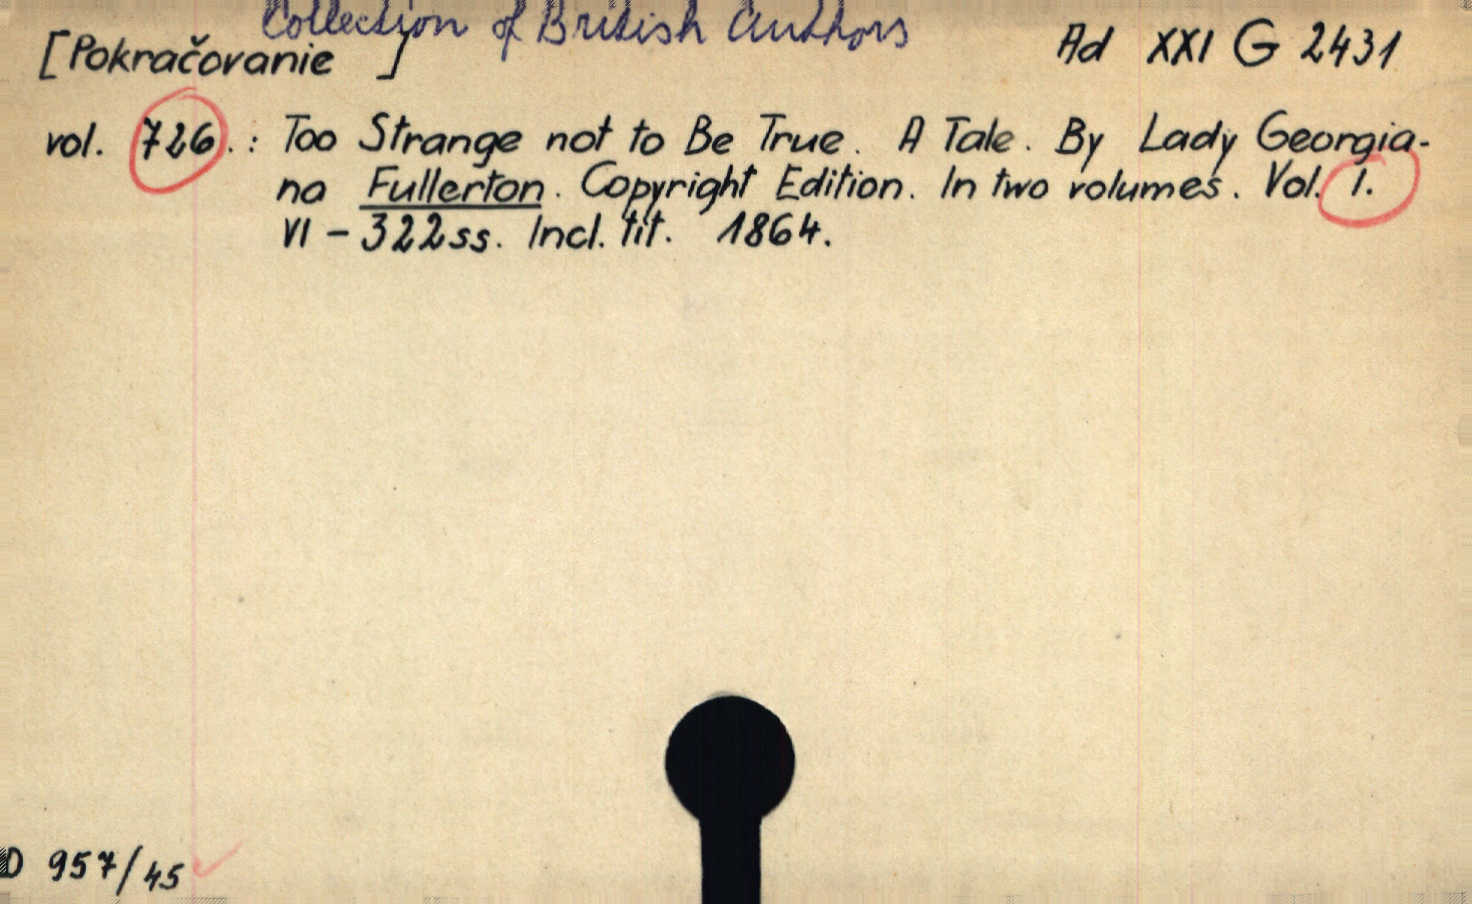 Collection of British Authors
[Pokračovanie ] Ad XXI G 2431
vol. 726. : Too Strange not to Be True. A Tale. By Lady Georgia-
na Fullerton. Copyright Edition. In two volumes. Vol. I.
VI - 322ss. Incl. tit. 1864.
D 957/45